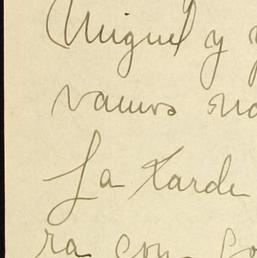 Miguel y
vamos
La tarde
ra con